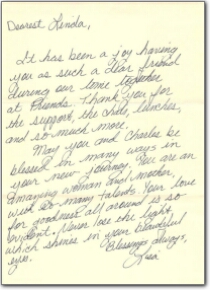 Dearest Linda,
It has been a joy having
you as such a dear friend
during our time together
at Friends. Thank you for
the support, the chats, lunches,
and so much more.
May you and Charles be
blessed in many ways in
your new journey. You are an
amazing woman and mother,
with so many talents. Your love
for goodness all around is so
evident. Never lose the light
which shines in your beautiful
eyes.
Blessings always,
Lisa